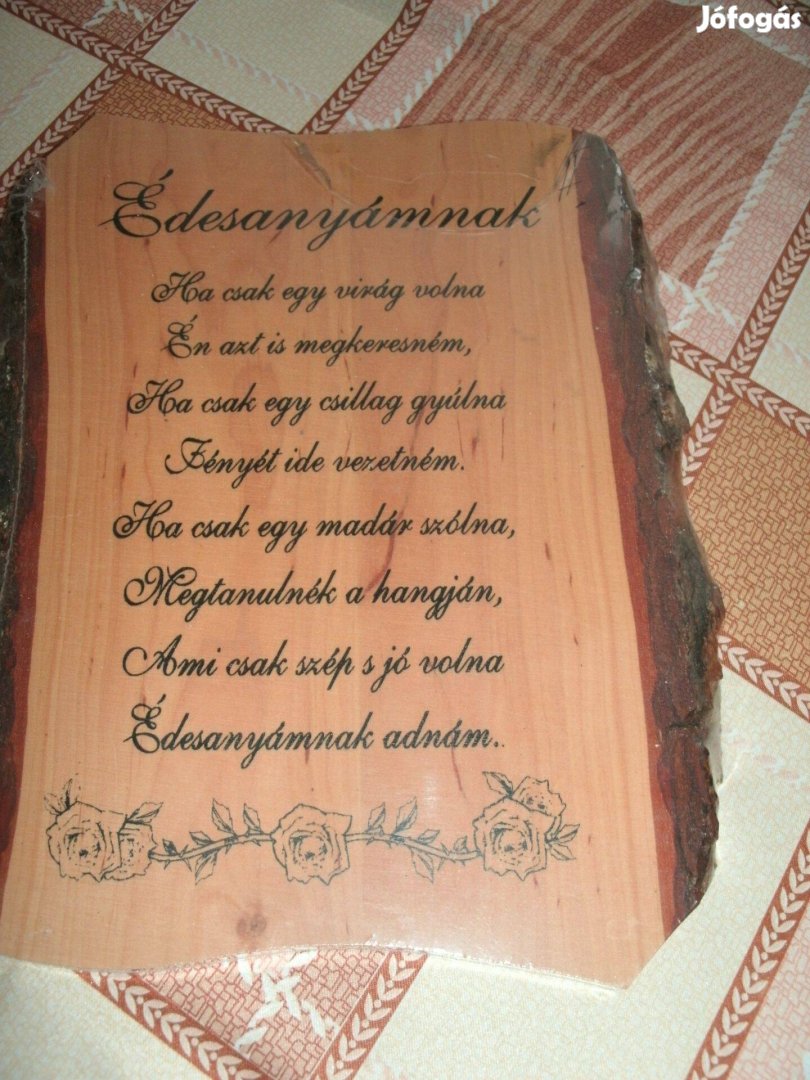 Jófogás
Édesanyámnak
Ha csak egy virág volna
Én azt is megkeresném,
Ha csak egy csillag gyúlna
Fényét ide vezetném.
Ha csak egy madár szólna,
Megtanulnék a hangján,
Ami csak szép s jó volna
Édesanyámnak adnám.